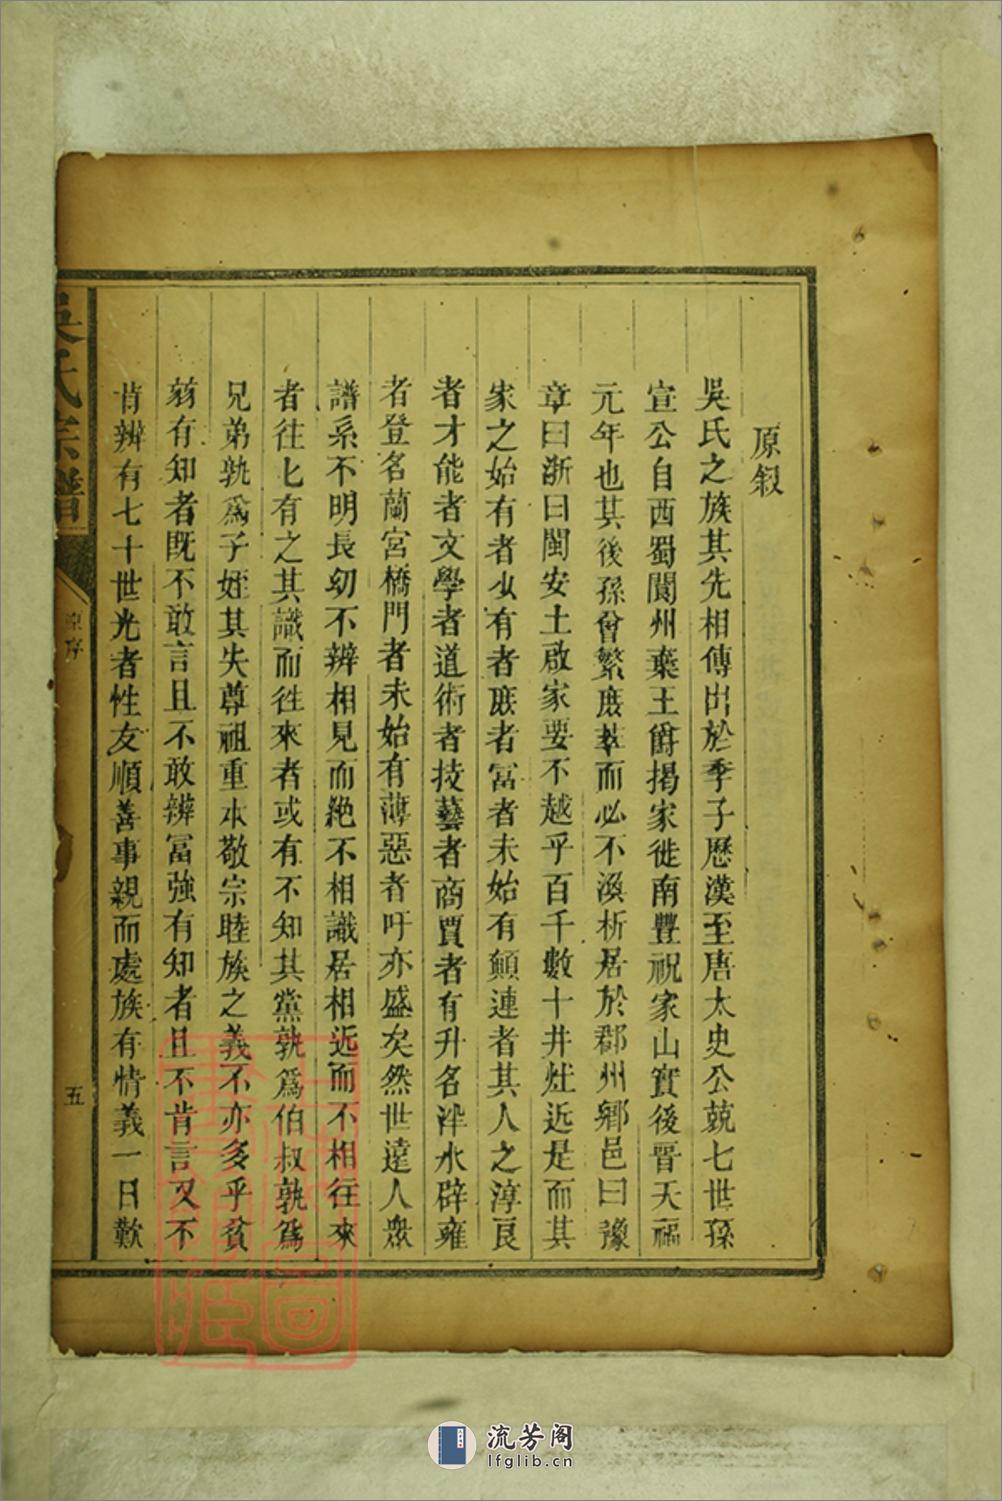 原叙
吳氏之族其先相傳出於季子歷漢至唐太史公兢七世孫
宣公自西蜀閬州棄王爵挈家徙南豐祝家山實後晉天福
元年也其後孫曾繁庶萃而必不渙析居於郡州鄉邑曰豫
章曰浙曰閩安土啟家要不越乎百千數十井灶近是而其
家之始有者少有者庶者富者未始有顛連者其人之淳良
者才能者文學者道術者技藝者商賈者有升名泮水辟雍
者登名蘭宮橋門者未始有薄惡者吁亦盛矣然世遠人眾
譜系不明長幼不辨相見而絕不相識居相近而不相往來
者往匕有之其識而往來者或有不知其黨孰爲伯叔孰爲
兄弟孰爲子姪其失尊祖重本敬宗睦族之義不亦多乎貧
弱有知者既不敢言且不敢辨富強有知者且不肯言又不
肯辨有七十世光者性友順善事親而處族有情義一日歎
吳氏宗譜
原序
五
流芳阁
lfglib.cn